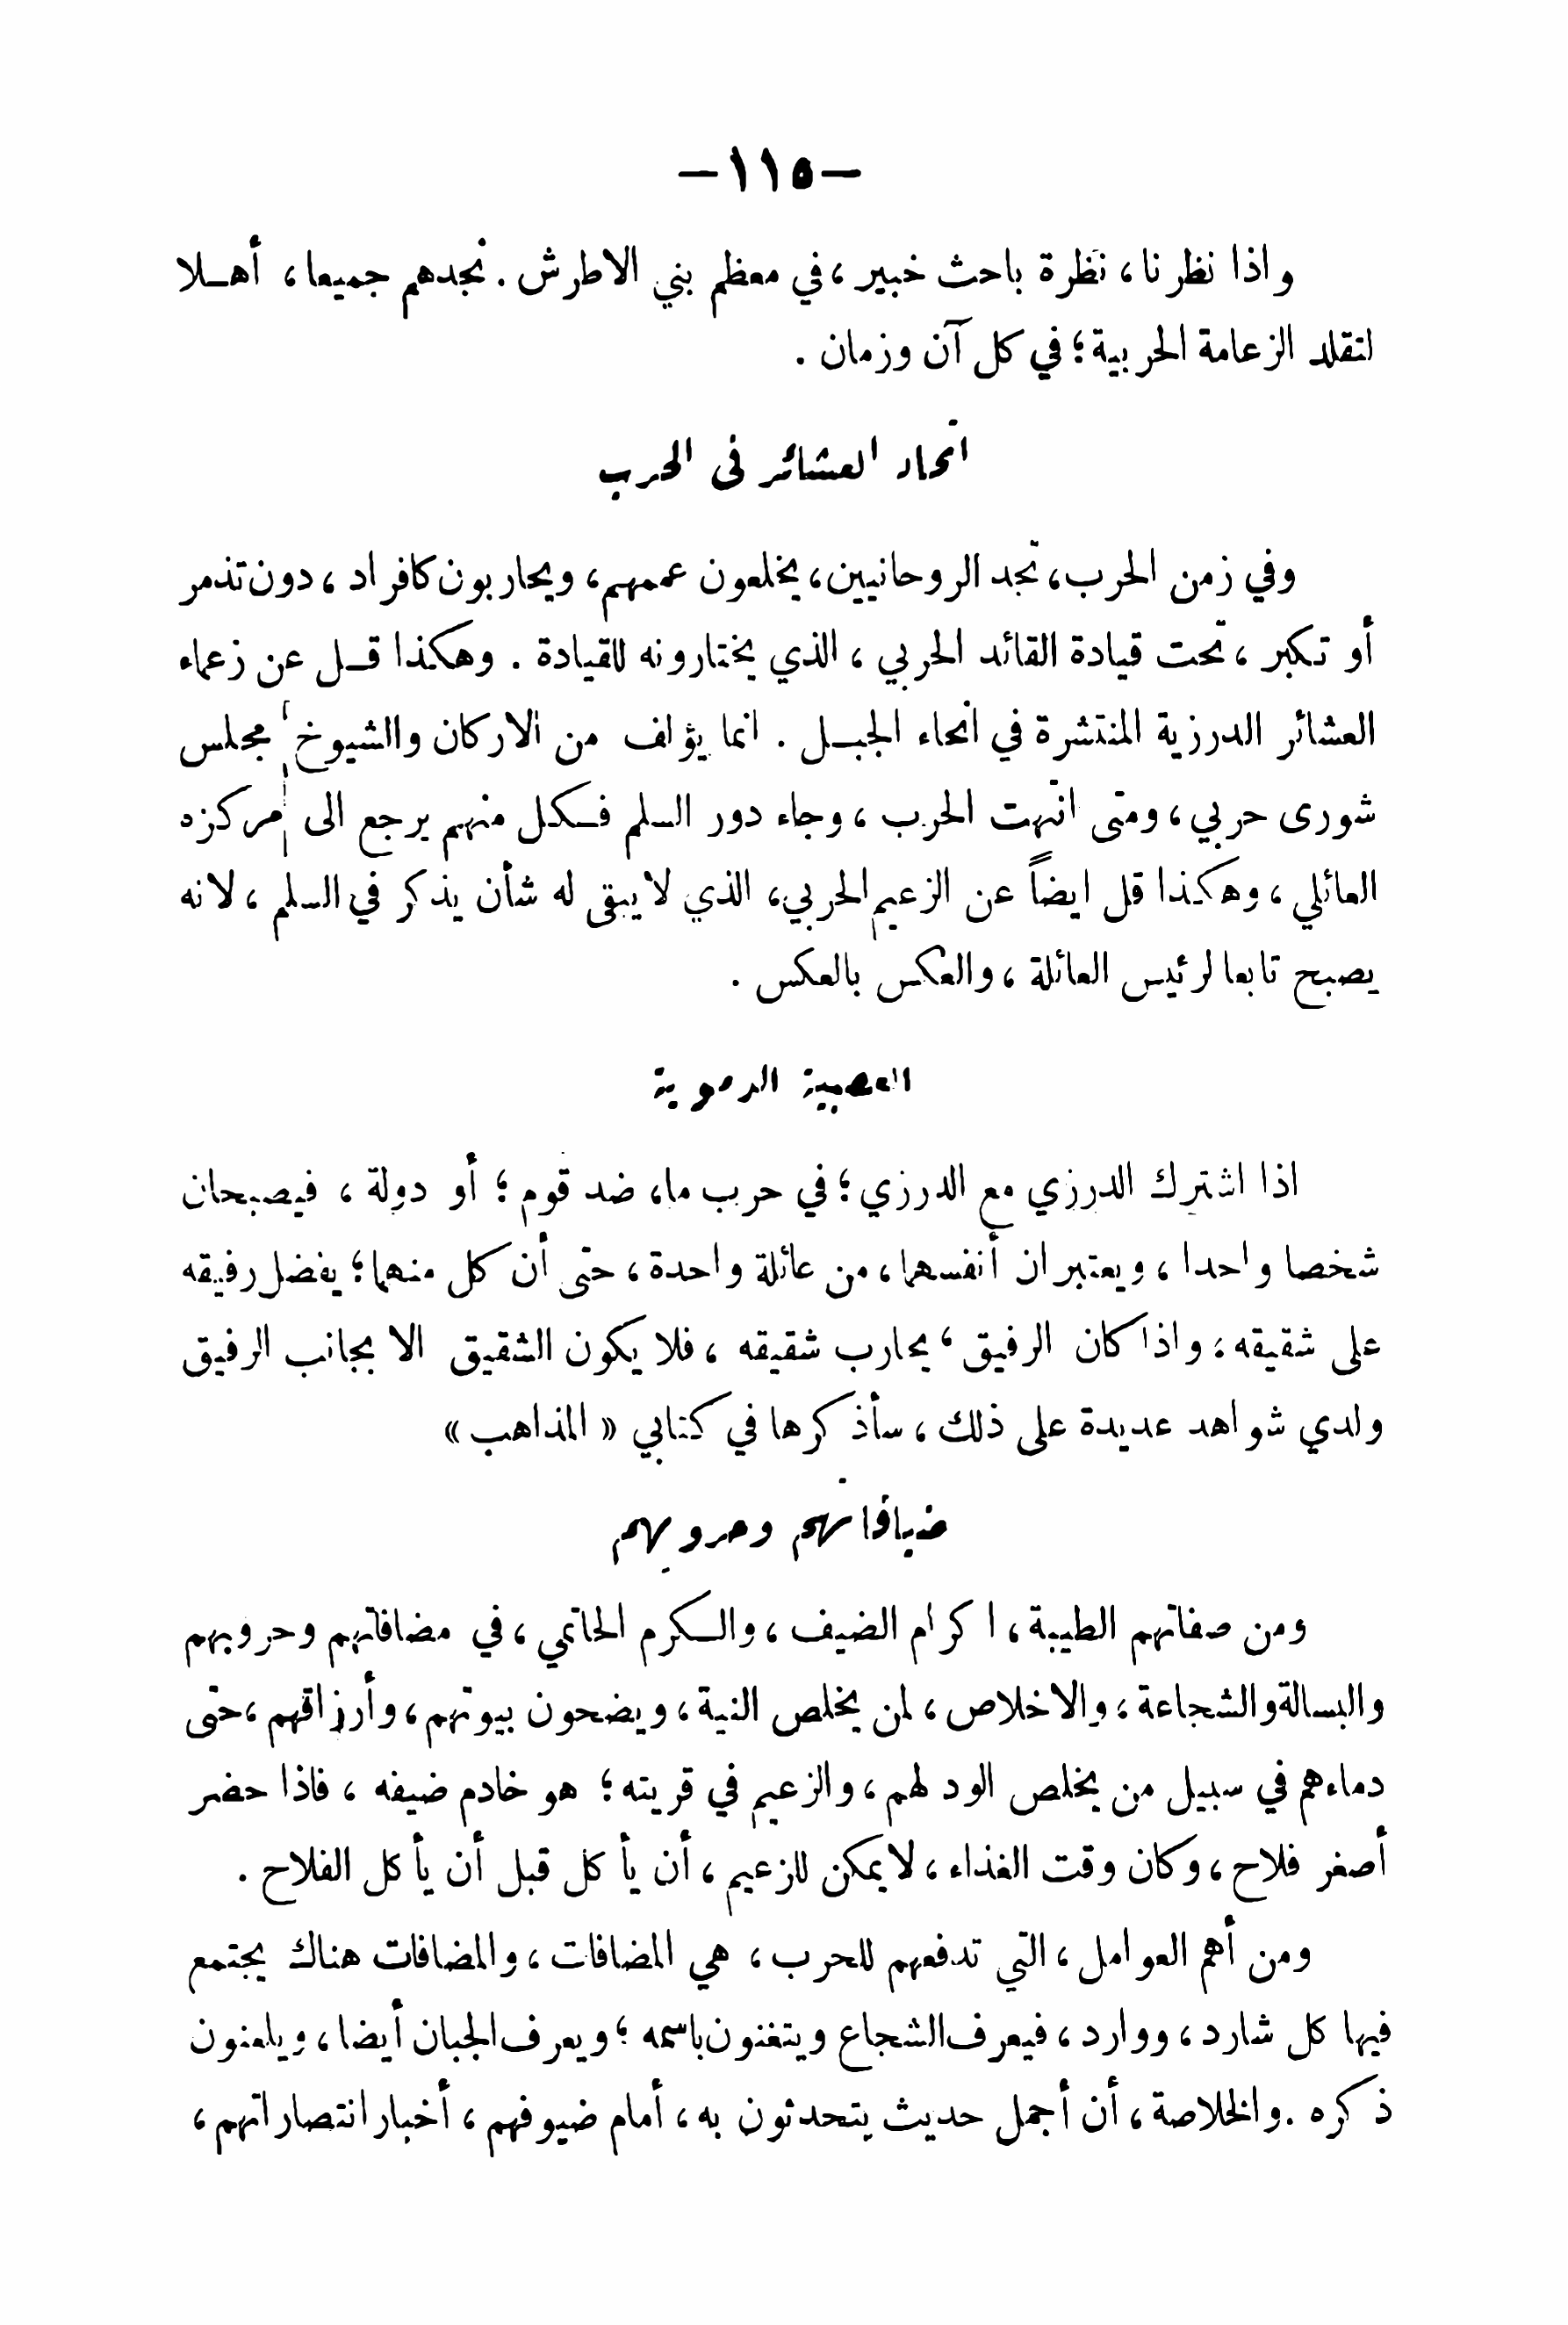 — ١١٥ —
واذا نظرنا، نظرة باحث خبير، في معظم بني الاطرش. نجدهم جميعا، أهلا
لتقلد الزعامة الحربية؛ في كل آن وزمان.
اتحاد العشائر في الحرب
وفي زمن الحرب، تجد الروحانيين، يخلعون عممهم، ويحاربون كافراد، دون تذمر
أو تكبر، تحت قيادة القائد الحربي، الذي يختارونه للقيادة. وهكذا قل عن زعماء
العشائر الدرزية المنتشرة في انحاء الجبل. انما يؤلف من الاركان والشيوخ، مجلس
شورى حربي، ومتى انتهت الحرب، وجاء دور السلم فكل منهم يرجع الى مركزه
العائلي، وهكذا قل ايضاً عن الزعيم الحربي، الذي لا يبقى له شأن يذكر في السلم، لانه
يصبح تابعا لرئيس العائلة، والعكس بالعكس.
العصبية الدموية
اذا اشترك الدرزي مع الدرزي؛ في حرب ما، ضد قوم؛ أو دولة، فيصبحان
شخصا واحدا، ويعتبران أنفسهما، من عائلة واحدة، حتى أن كل منهما؛ يفضل رفيقه
على شقيقه؛ واذا كان الرفيق، يحارب شقيقه، فلا يكون الشقيق الا بجانب الرفيق
ولدي شواهد عديدة على ذلك، سأذكرها في كتابي « المذاهب »
ضيافاتهم وحروبهم
ومن صفاتهم الطيبة، اكرام الضيف، والكرم الحاتمي، في مضافاتهم وحروبهم
والبسالة والشجاعة، والاخلاص، لمن يخلص النية، ويضحون بيوتهم، وأرزاقهم، حتى
دماءهم في سبيل من يخلص الود لهم، والزعيم في قريته؛ هو خادم ضيفه، فاذا حضر
أصغر فلاح، وكان وقت الغذاء، لا يمكن للزعيم، أن يأكل قبل أن يأكل الفلاح.
ومن أهم العوامل، التي تدفعهم للحرب، هي المضافات، والمضافات هناك يجتمع
فيها كل شارد، ووارد، فيعرف الشجاع ويتغنون باسمه؛ ويعرف الجبان أيضا، ويلعنون
ذكره. والخلاصة، أن أجمل حديث يتحدثون به، أمام ضيوفهم، أخبار انتصاراتهم،